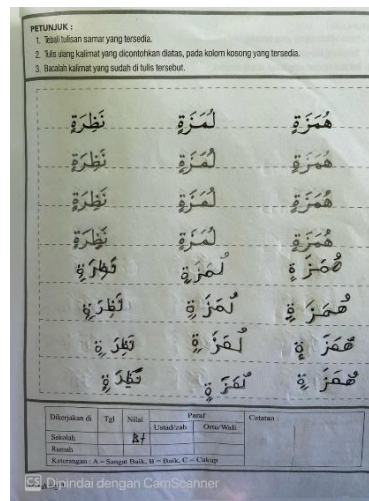 PETUNJUK :
1. Tebali tulisan samar yang tersedia.
2. Tulis ulang kalimat yang dicontohkan diatas, pada kolom kosong yang tersedia.
3. Bacalah kalimat yang sudah di tulis tersebut.
هُمَزَةٍ لُمَزَةٍ نَظِرَةٍ
هُمَزَةٍ لُمَزَةٍ نَظِرَةٍ
هُمَزَةٍ لُمَزَةٍ نَظِرَةٍ
هُمَزَةٍ لُمَزَةٍ نَظِرَةٍ
هُمَزَةٍ لُمَزَةٍ نَظِرَةٍ
هُمَزَةٍ لُمَزَةٍ نَظِرَةٍ
هُمَزَةٍ لُمَزَةٍ نَظِرَةٍ
هُمَزَةٍ لُمَزَةٍ نَظِرَةٍ
Dikerjakan di Tgl Nilai Paraf Catatan :
Ustad/zah Ortu/Wali
Sekolah B+
Rumah
Keterangan : A = Sangat Baik, B = Baik, C = Cukup
CS Dipindai dengan CamScanner